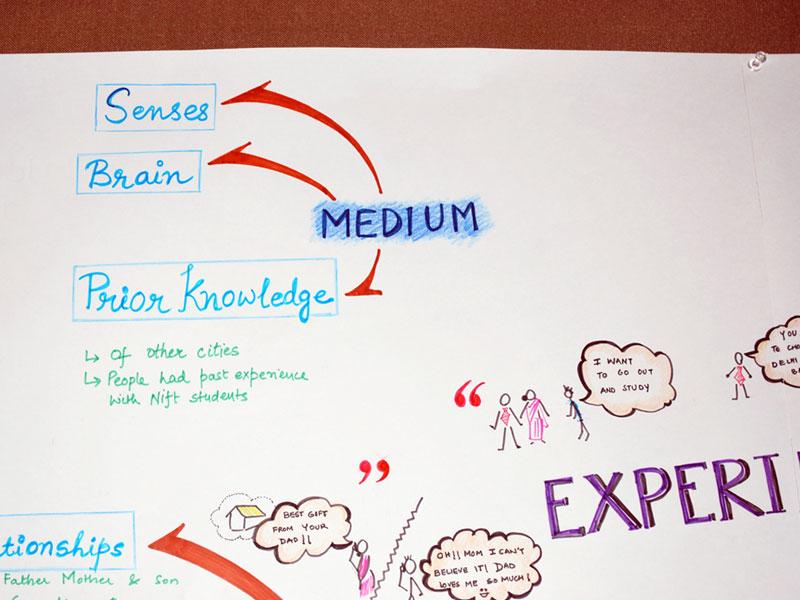 Senses
Brain
MEDIUM
Prior Knowledge
↳ Of other cities
↳ People had past experience
with Nift students
I WANT
TO GO OUT
AND STUDY
YOU
TO
DELHI
“
”
EXPERI
BEST GIFT
FROM YOUR
DAD!!
OH!! MOM I CAN'T
BELIEVE IT! DAD
LOVES ME SO MUCH!
tionships
Father Mother & Son